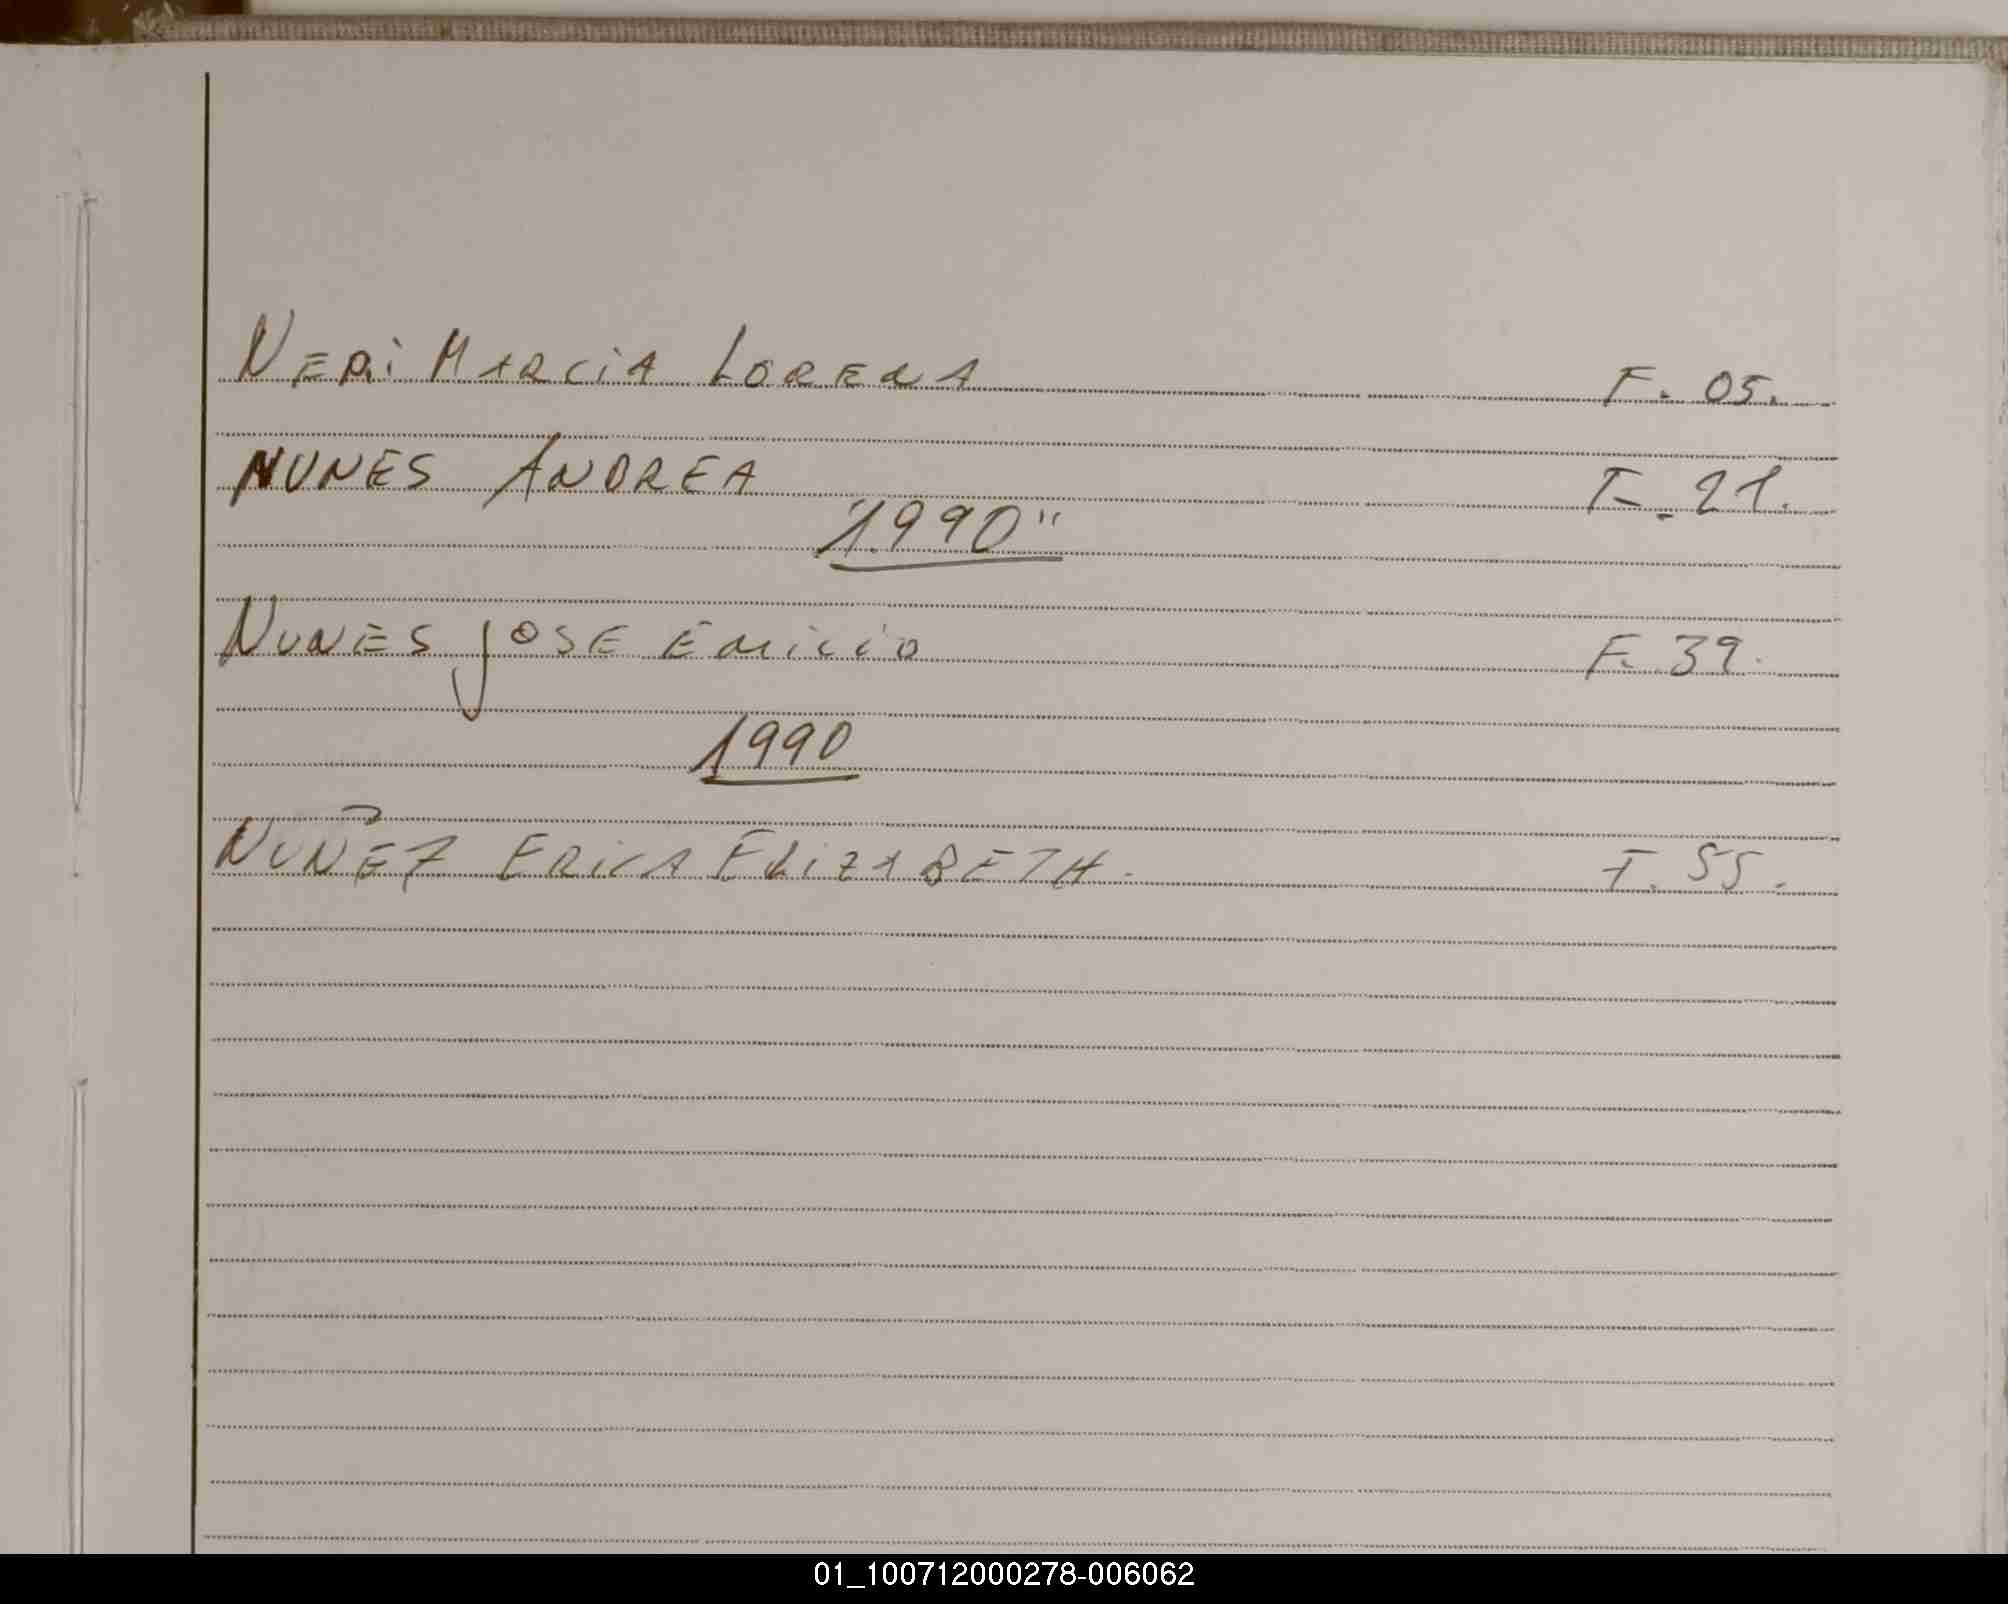 NERi MARCiA LORENA F. 05.
NUNES ANDREA F. 21.
"1990"
NUNES JOSE EMiLiO F. 39.
1990
NUÑEZ ERiCA ELiZABETH. F. 55.
01_100712000278-006062